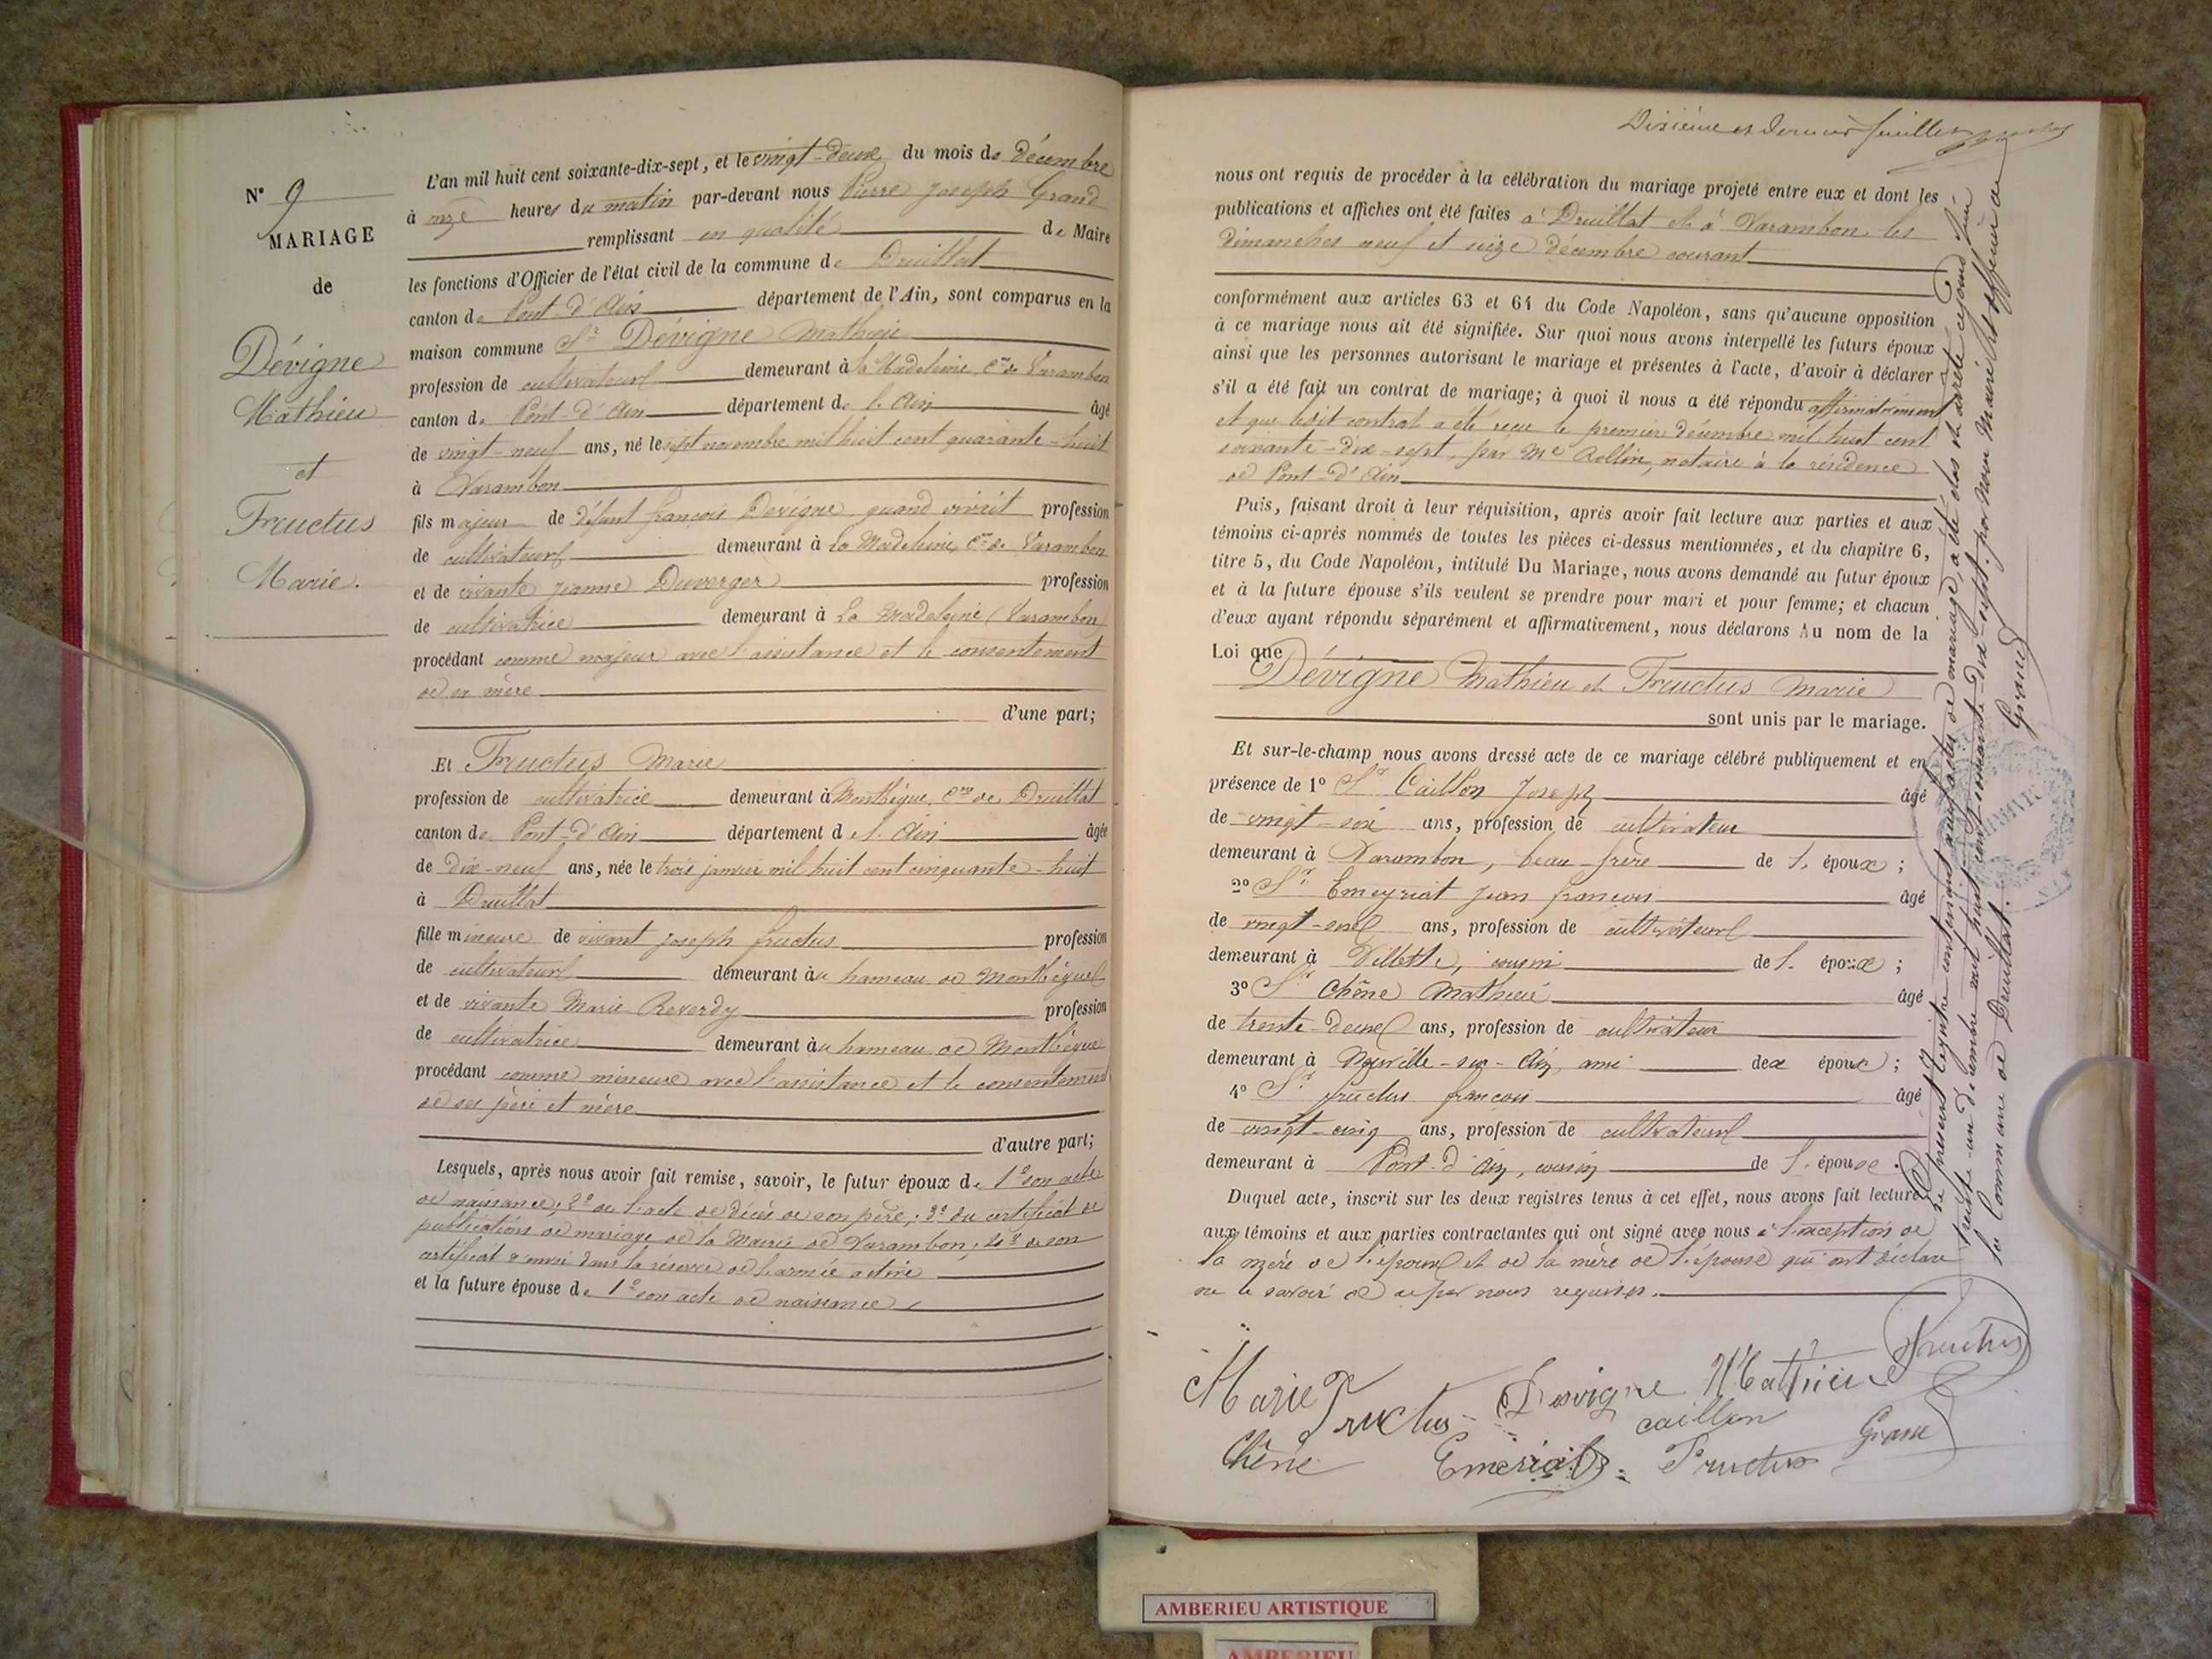 N° 9
MARIAGE
de
Dévigne
Mathieu
et
Fructus
Marie.
L'an mil huit cent soixante-dix-sept, et le vingt-deux du mois de décembre
à onze heures du matin par-devant nous Pierre Joseph Grand
remplissant en qualité de Maire
les fonctions d'Officier de l'état civil de la commune de Druillat
canton de Pont-d'Ain département de l'Ain, sont comparus en la
maison commune Sr Dévigne Mathieu
profession de cultivateur demeurant à la Madeleine, Cne de Varambon
canton de Pont-d'Ain département de l'Ain âgé
de vingt-neuf ans, né le sept novembre mil huit cent quarante-huit
à Varambon
fils majeur de défunt françois Dévigne quand vivait profession
de cultivateur demeurant à La Madeleine, Cne de Varambon
et de vivante Jeanne Duverger profession
de cultivatrice demeurant à La Madeleine (Varambon)
procédant comme majeur avec l'assistance et le consentement
de sa mère
d'une part;
Et Fructus Marie
profession de cultivatrice demeurant à Monthégue, Cne de Druillat
canton de Pont-d'Ain département de l'Ain âgée
de dix-neuf ans, née le trois janvier mil huit cent cinquante-huit
à Druillat
fille mineure de vivant Joseph fructus profession
de cultivateur demeurant au hameau de
et de vivante Marie Reverdy profession
de cultivatrice demeurant au hameau de
procédant comme mineure avec l'assistance et le consentement
de ses père et mère
d'autre part;
Lesquels, après nous avoir fait remise, savoir, le futur époux de 1° son acte
de naissance; 2° de l'acte de décès de son père; 3° du certificat de
publications de mariage de la Mairie de Varambon; 4° de son
certificat d'envoi dans la réserve de l'armée active
et la future épouse de 1° son acte de naissance
Dixième et dernier feuillet
nous ont requis de procéder à la célébration du mariage projeté entre eux et dont les
publications et affiches ont été faites à Druillat et à Varambon les
dimanches neuf et seize décembre courant
conformément aux articles 63 et 64 du Code Napoléon, sans qu'aucune opposition
à ce mariage nous ait été signifiée. Sur quoi nous avons interpellé les futurs époux
ainsi que les personnes autorisant le mariage et présentes à l'acte, d'avoir à déclarer
s'il a été fait un contrat de mariage; à quoi il nous a été répondu affirmativement
et que ledit contrat a été reçu le premier décembre mil huit cent
soixante-dix-sept, par Me Rollin, notaire à la résidence
de Pont-d'Ain
Puis, faisant droit à leur réquisition, après avoir fait lecture aux parties et aux
témoins ci-après nommés de toutes les pièces ci-dessus mentionnées, et du chapitre 6,
titre 5, du Code Napoléon, intitulé Du Mariage, nous avons demandé au futur époux
et à la future épouse s'ils veulent se prendre pour mari et pour femme; et chacun
d'eux ayant répondu séparément et affirmativement, nous déclarons Au nom de la
Loi que
Dévigne Mathieu et Fructus Marie
sont unis par le mariage.
Et sur-le-champ nous avons dressé acte de ce mariage célébré publiquement et en
présence de 1° Sr Caillon Joseph âgé
de vingt-six ans, profession de cultivateur
demeurant à Varambon, beau-frère de l'époux;
2° Sr Emeyriat Jean françois âgé
de ans, profession de cultivateur
demeurant à Villette, cousin de l'époux;
3° Sr Chêne Mathieu âgé
de trente-deux ans, profession de cultivateur
demeurant à Neuville-sur-Ain, ami des époux;
4° Sr fructus françois âgé
de vingt-cinq ans, profession de cultivateur
demeurant à Pont-d'Ain, cousin de l'épouse.
Duquel acte, inscrit sur les deux registres tenus à cet effet, nous avons fait lecture
aux témoins et aux parties contractantes qui ont signé avec nous à l'exception de
la mère de l'époux et de la mère de l'épouse qui ont déclaré
ne le savoir de ce par nous requises.
Marie Fructus Devigne Mathieu Fructus
Chêne Emeriat caillon Fructus Grand
Le présent registre contenant neuf actes de mariage, a été clos et arrêté cejourd'hui
trente-un décembre mil huit cent soixante-dix-sept, par nous Maire et officier de
la Commune de Druillat.
Grand
AMBERIEU ARTISTIQUE
AMBERIEU